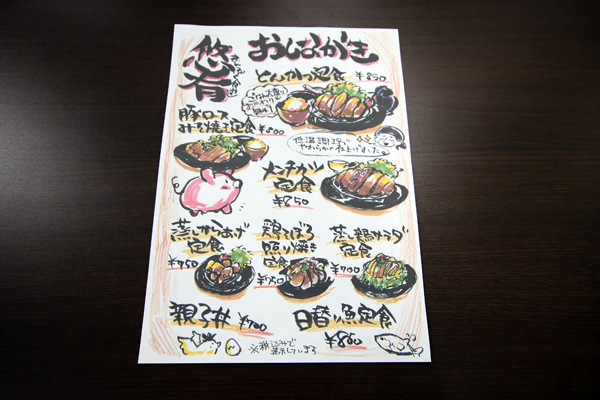 おしながき
悠有
とんかつ定食 ¥850
豚ロース
みそ焼き定食 ¥800
低温調理で
やわらかく仕上げました。
メンチカツ
定食
¥850
蒸しからあげ
定食
¥750
鶏そぼろ
照り焼き
定食
¥750
蒸し鶏サラダ
定食
¥700
親子丼 ¥700
日替り魚定食
¥850
※税込みで
表示しています